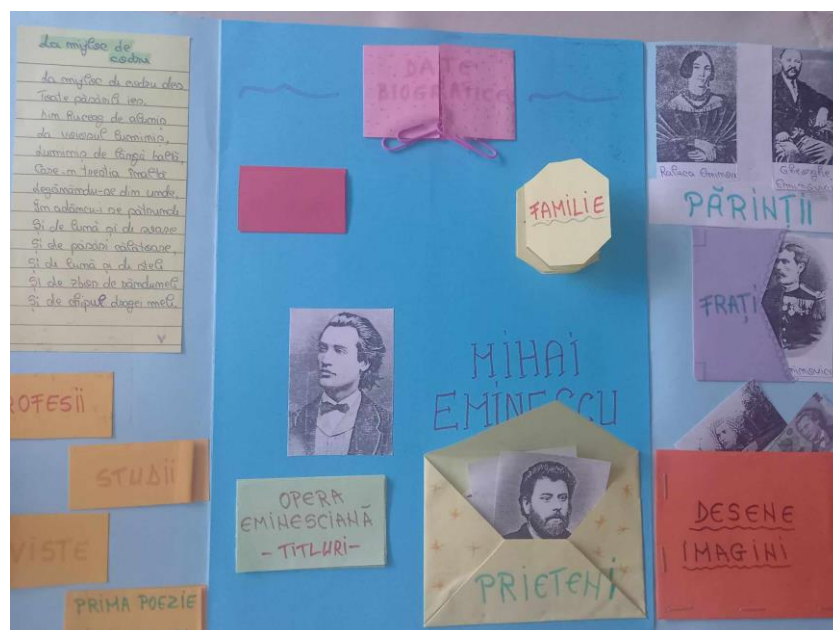 La mijloc de
codru
La mijloc de codru des
Toate păsările ies,
Din huceag de aluniș
La voiosul luminiș,
Luminiș de lângă baltă,
Care-n trestia înaltă
Legănându-se din unde,
În adâncu-i se pătrunde
Și de lună și de soare
Și de păsări călătoare,
Și de lună și de stele
Și de zbor de rândunele
Și de chipul dragei mele.
OFESII
STUDII
VISTE
PRIMA POEZIE
DATE
BIOGRAFICE
FAMILIE
MIHAI
EMINESCU
OPERA
EMINESCIANĂ
- TITLURI -
PRIETENI
Raluca Eminovici
Gheorghe
Eminovici
PĂRINȚII
FRAȚI
DESENE
IMAGINI